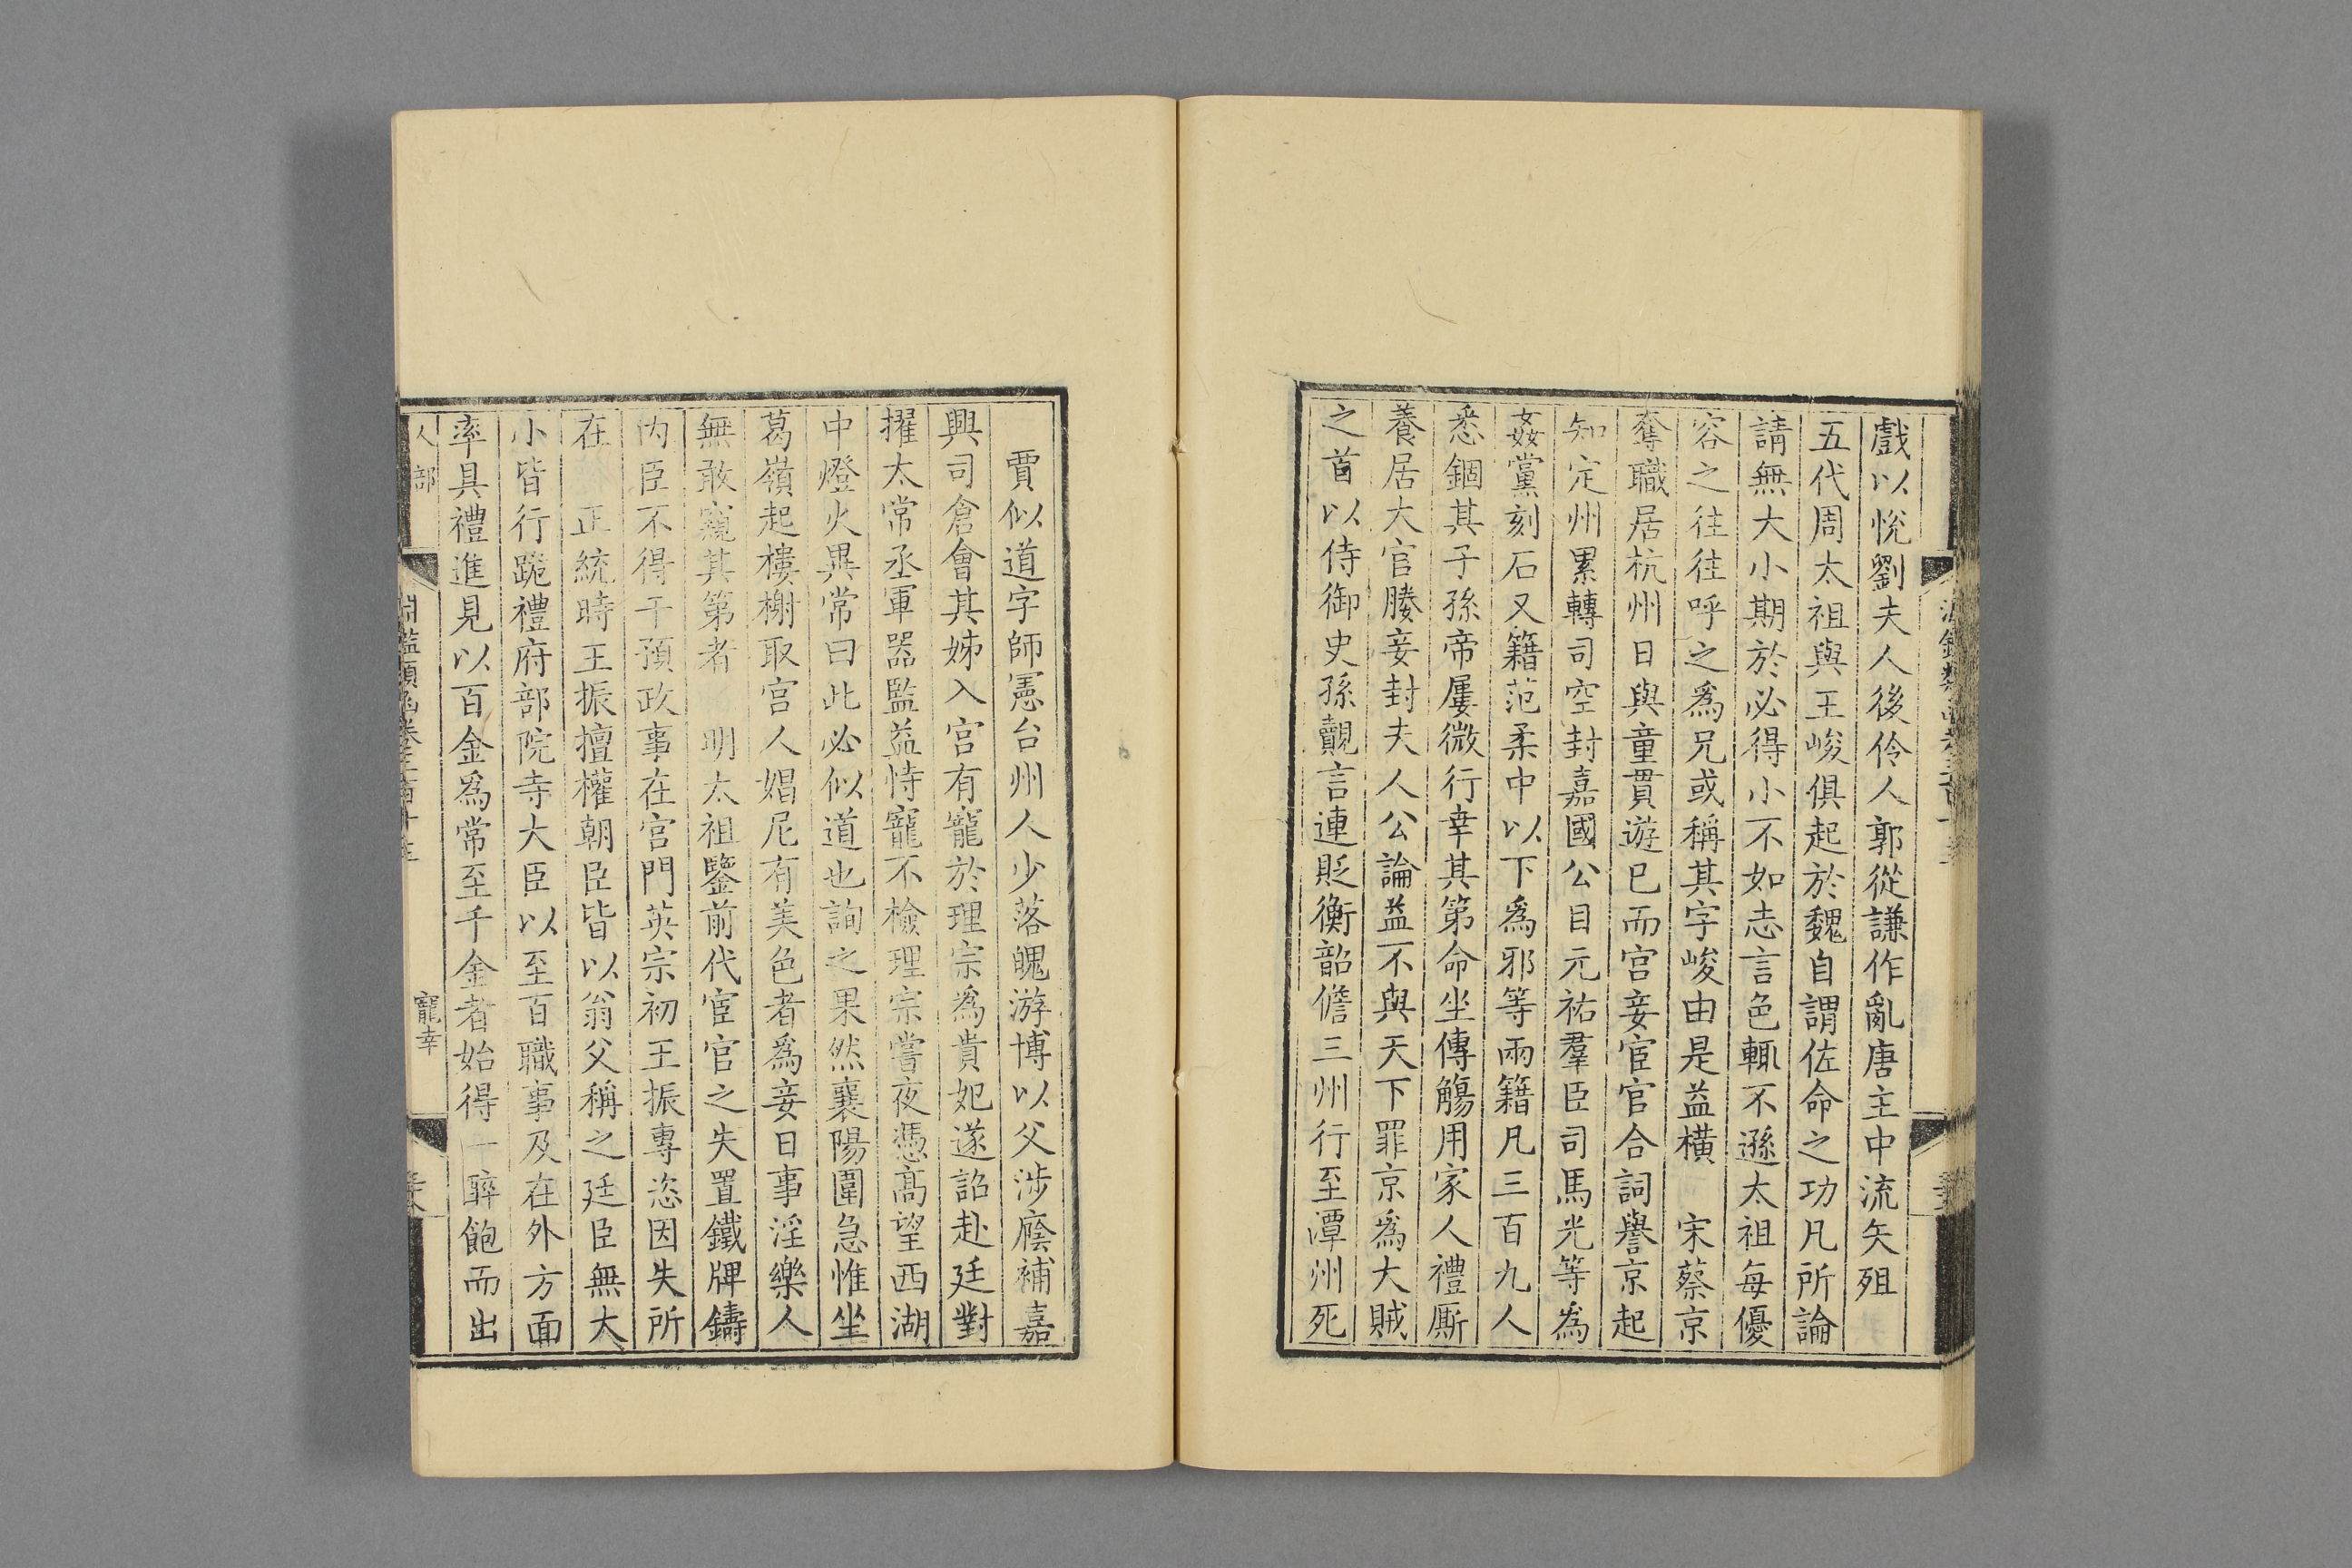 戲以悅劉夫人後伶人郭從謙作亂唐主中流矢殂
五代周太祖與王峻俱起於魏自謂佐命之功凡所論
請無大小期於必得小不如志言色輒不遜太祖每優
容之往往呼之爲兄或稱其字峻由是益橫　宋蔡京
奪職居杭州日與童貫遊已而宮妾宦官合詞譽京起
知定州累轉司空封嘉國公目元祐羣臣司馬光等爲
姦黨刻石又籍范柔中以下爲邪等兩籍凡三百九人
悉錮其子孫帝屢微行幸其第命坐傳觴用家人禮厮
養居大官媵妾封夫人公論益不與天下罪京爲大賊
之首以侍御史孫覿言連貶衡韶儋三州行至潭州死
賈似道字師憲台州人少落魄游博以父涉廕補嘉
興司倉會其姊入宮有寵於理宗爲貴妃遂詔赴廷對
擢太常丞軍器監益恃寵不檢理宗嘗夜憑高望西湖
中燈火異常曰此必似道也詢之果然襄陽圍急惟坐
葛嶺起樓榭取宮人娼尼有美色者爲妾日事淫樂人
無敢窺其第者　明太祖鑒前代宦官之失置鐵牌鑄
内臣不得干預政事在宮門英宗初王振專恣因失所
在　正統時王振擅權朝臣皆以翁父稱之廷臣無大
小皆行跪禮府部院寺大臣以至百職事及在外方面
率具禮進見以百金爲常至千金者始得一醉飽而出
人部
淵鑑類函卷三百十五
寵幸